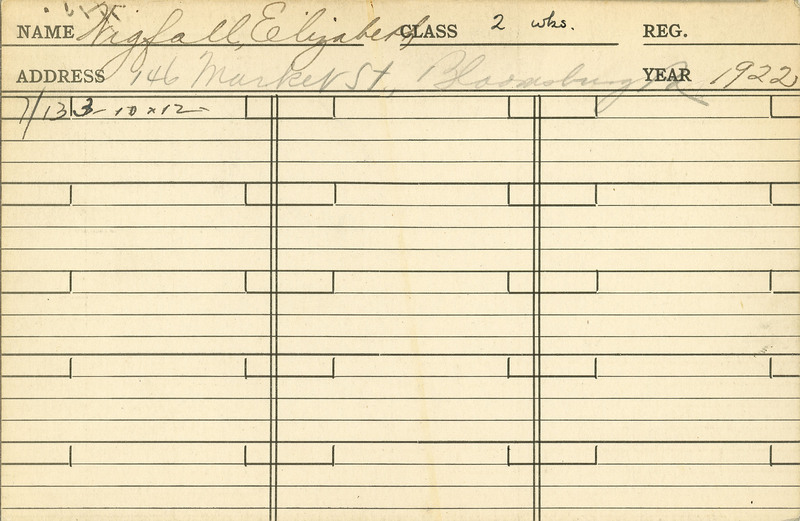 NAME Wigfall, Elizabeth CLASS 2 wks. REG.
ADDRESS 146 Market St., Bloomsburg Pa YEAR 1922
7/13 3 - 10 x 12 -